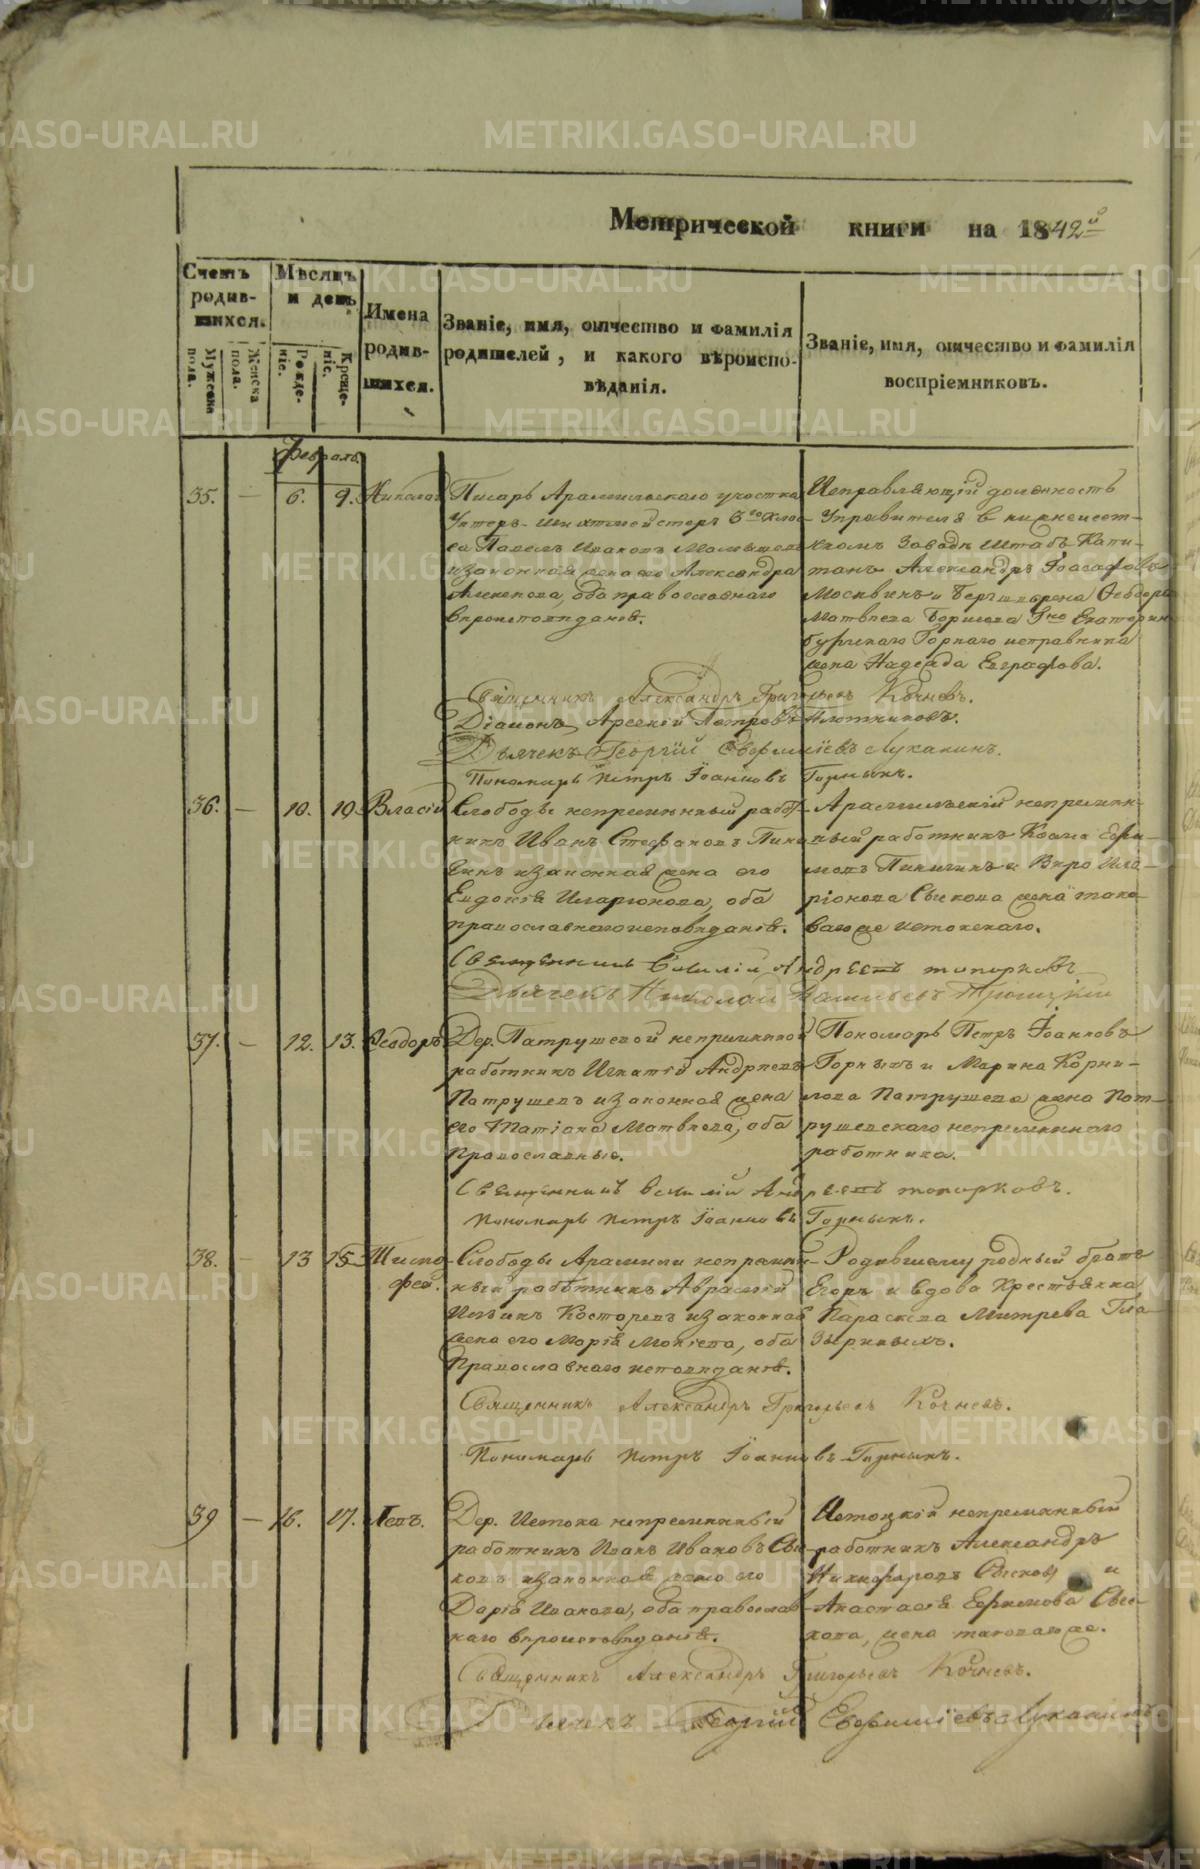 Метрической книги на 1842й
Счетъ родив-шихся.
Мужеска пола.
Женска пола.
Мѣсяцъ и день
Рожде-ніе.
Креще-ніе.
Имена родив-шихся.
Званіе, имя, отчество и фамилія
родителей, и какого вѣроиспо-
вѣданія.
Званіе, имя, отчество и фамилія
воспріемниковъ.
Февраль
35. — 6. 9. Николай
Писарь Арамильскаго участка
Унтеръ-Шихтмейстеръ 3го клас-
са Павелъ Ивановъ
и законная жена его Александра
Алексѣева, оба православнаго
вѣроисповѣданія.
Исправляющій должность
Управителя в нижнеисет-
скомъ Заводѣ Штабъ-Капи-
танъ Александръ Іоасафовъ
Москвинъ и
Матвѣева Екатерин-
бургскаго Горнаго исправника
жена Надежда Евграфова.
Священникъ Александръ Григорьевъ Кочневъ.
Діаконъ Арсеній Петровъ Плотниковъ.
Дьячекъ Георгій Евфиміевъ Луканинъ.
Пономарь Петръ Іоанновъ Горныхъ.
36. — 10. 10. Власій
Слободы непремѣнный работ-
никъ Иванъ Стефановъ
и законная жена его
Евдокія Иларіонова, оба
православнаго исповѣданія.
Арамильскій непремѣн-
ный работникъ Козма Ефи-
мовъ и Вѣра Ила-
ріонова Сыскова жена тако-
ваго же истокскаго.
Священникъ Василій Андреевъ Топорковъ
Дьячекъ Николай Васильевъ Троицкій
37. — 12. 13. Ѳеодоръ
Дер. Патрушевой непремѣнной
работникъ Игнатій Андреевъ
Патрушевъ и законная жена
его Татіана Матвѣева, оба
Православные.
Пономарь Петръ Іоанновъ
Горныхъ и Марина Корни-
лова Патрушева жена Пат-
рушевскаго непремѣннаго
работника.
Священникъ Василій Андреевъ Топорковъ.
Пономарь Петръ Іоанновъ Горныхъ.
38. — 13 15 Тимо-
фей.
Слободы Арамили непремѣн-
ный работникъ Аврамій
Костаревъ и законная
жена его Марія Мокѣева, оба
Православнаго исповѣданія.
Родившему родный братъ
Егоръ и вдова Крестьянка
Параскева Митрева Гла-
зыриныхъ.
Священникъ Александръ Григорьевъ Кочневъ.
Пономарь Петръ Іоанновъ Горныхъ.
39 — 16. 17. Левъ.
Дер. Истока непремѣнный
работникъ Иванъ Ивановъ Сыс-
ковъ и законная жена его
Дарія Иванова, оба православ-
наго вѣроисповѣданія.
Истоцкій непремѣнный
работникъ Александръ
Никифоровъ Сысковъ и
Анастасія Ефимова Сыс-
кова, жена таковаго же.
Священникъ Александръ Григорьевъ Кочневъ.
Дьячекъ Георгій Евфиміевъ Луканинъ
METRIKI.GASO-URAL.RU